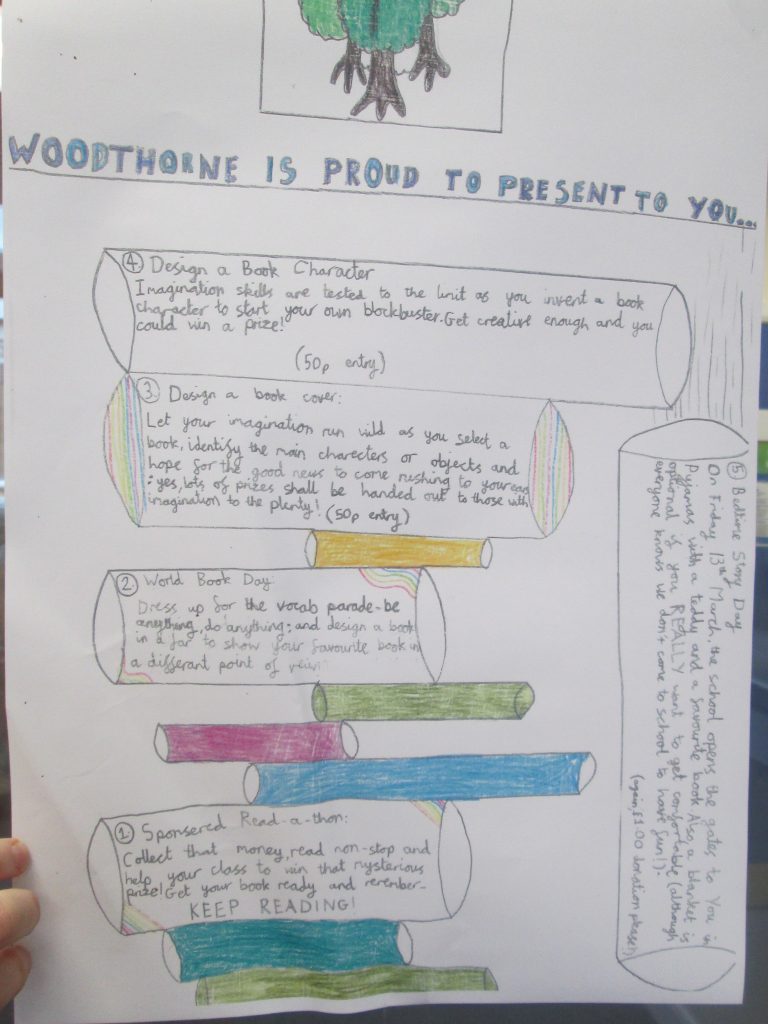 WOODTHORNE IS PROUD TO PRESENT TO YOU...
④ Design a Book Character
Imagination skills are tested to the limit as you invent a book
character to start your own blockbuster. Get creative enough and you
could win a prize!
(50p entry)
③. Design a book cover:
Let your imagination run wild as you select a
book, identify the main charecters or objects and
hope for the good news to come rushing to your ears
: yes, lots of prizes shall be handed out to those with
imagination to the plenty! (50p entry)
②. World Book Day:
Dress up for the vocab parade - be
anything, do anything; and design a book
in a jar to show your favourite book in
a differant point of view!
① Sponsered Read-a-thon:
Collect that money, read non-stop and
help your class to win that mysterious
prize! Get your book ready and remember-
KEEP READING!
⑤ Bedtime Story Day
On Friday 13th March, the school opens the gates to You in
Pyjamas with a teddy and a favourite book. Also, a blanket is
optional if you REALLY want to get comfortable (although
everyone knows we don't come to school to have fun!).
(again, £1.00 donation please!)